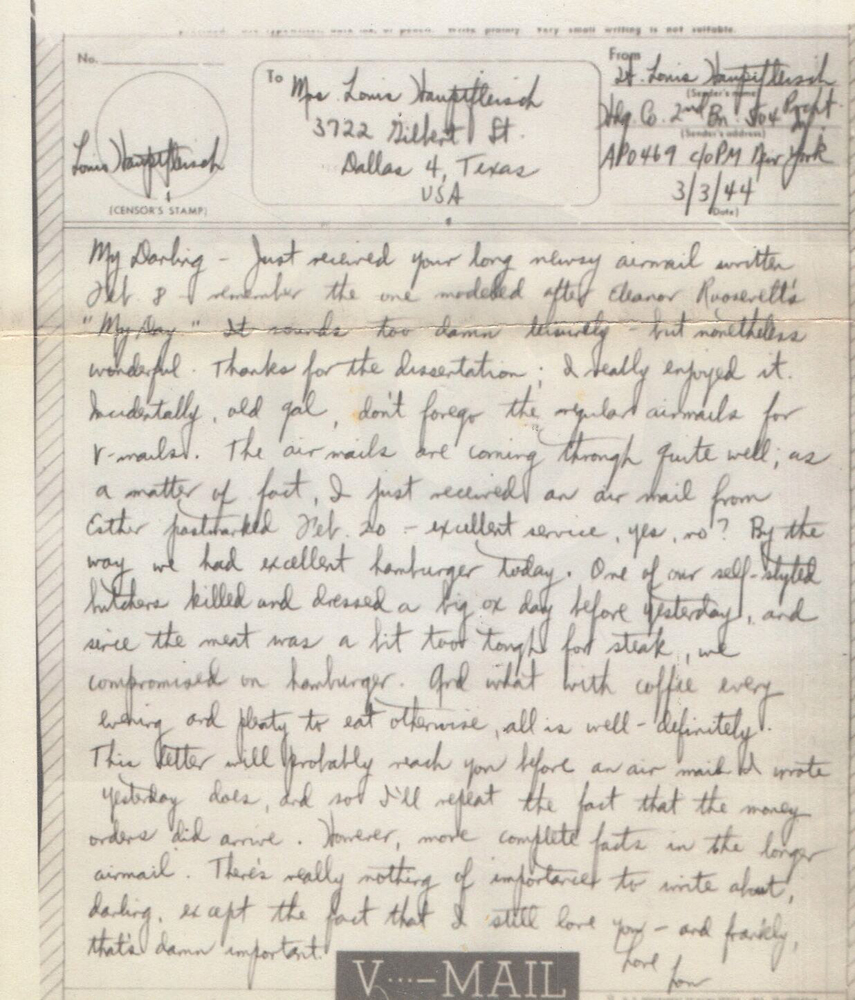 Write plainly. Very small writing is not suitable.
No.
To
Mrs. Louis Hauptfleisch
3722 Gilbert St.
Dallas 4, Texas
USA
From
Lt. Louis Hauptfleisch
(Sender's name)
Hdq. Co. 2nd Bn. 504 Prcht. Inf.
(Sender's address)
APO 469 c/o PM New York
3/3/44
(Date)
Louis Hauptfleisch
(CENSOR'S STAMP)
My Darling - Just received your long newsy airmail written
Feb. 8 - remember the one modeled after Eleanor Roosevelt's
"My Day" It sounds too damn leisurely - but nonetheless
wonderful. Thanks for the dissertation; I really enjoyed it.
Incidentally, old gal, don't forego the regular airmails for
V-mails. The air mails are coming through quite well; as
a matter of fact, I just received an air mail from
Esther postmarked Feb. 20 - excellent service, yes, no? By the
way we had excellent hamburger today. One of our self-styled
butchers killed and dressed a big ox day before yesterday, and
since the meat was a bit too tough for steak, we
compromised on hamburger. And what with coffee every
evening and plenty to eat otherwise, all is well - definitely.
This letter will probably reach you before an air mail I wrote
yesterday does, and so I'll repeat the fact that the money
orders did arrive. However, more complete facts in the longer
airmail. There's really nothing of importance to write about,
darling, except the fact that I still love you - and frankly,
that's damn important.
Love
Lou
V···-MAIL